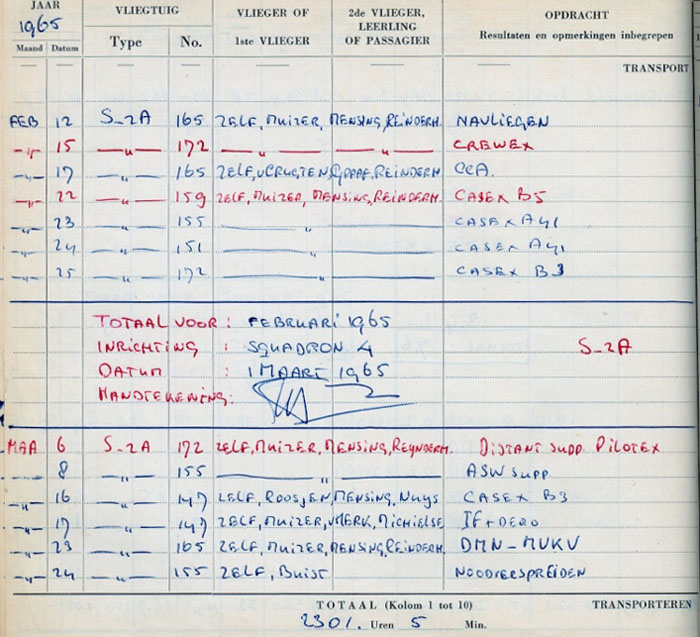 JAAR VLIEGTUIG VLIEGER OF 2de VLIEGER, OPDRACHT
1965 LEERLING
Maand Datum Type No. 1ste VLIEGER OF PASSAGIER Resultaten en opmerkingen inbegrepen
TRANSPORT
FEB 12 S-2A 165 ZELF, MUIZER, MENSING, REINDERM. NAVLIEGEN
-„- 15 -„- 172 -„- -„- CREWEX
-„- 17 -„- 165 ZELF, GRAAF, REINDERM CCA.
-„- 22 -„- 159 ZELF, MUIZER, MENSING, REINDERM. CASEX B5
-„- 23 -„- 155 -„- CASEX A41
-„- 24 -„- 151 -„- CASEX A41
-„- 25 -„- 172 -„- CASEX B3
TOTAAL VOOR : FEBRUARI 1965
INRICHTING : SQUADRON 4 S-2A
DATUM : 1 MAART 1965
HANDTEKENING:
MAA 6 S-2A 172 ZELF, MUIZER, MENSING, REYNDERM. DISTANT SUPP PILOTEX
-„- 8 -„- 155 -„- ASW SUPP
-„- 16 -„- 147 ZELF, ROOSJEN, MENSING, NUYS CASEX B3
-„- 17 -„- 147 ZELF, MUIZER, VMERK, MICHIELSE IF + DERO
-„- 23 -„- 165 ZELF, MUIZER, MENSING, REINDERM. DMN - MVKV
-„- 24 -„- 155 ZELF, BUIST NOODVERSPREIDEN
TOTAAL (Kolom 1 tot 10) TRANSPORTEREN
2301. Uren 5 Min.